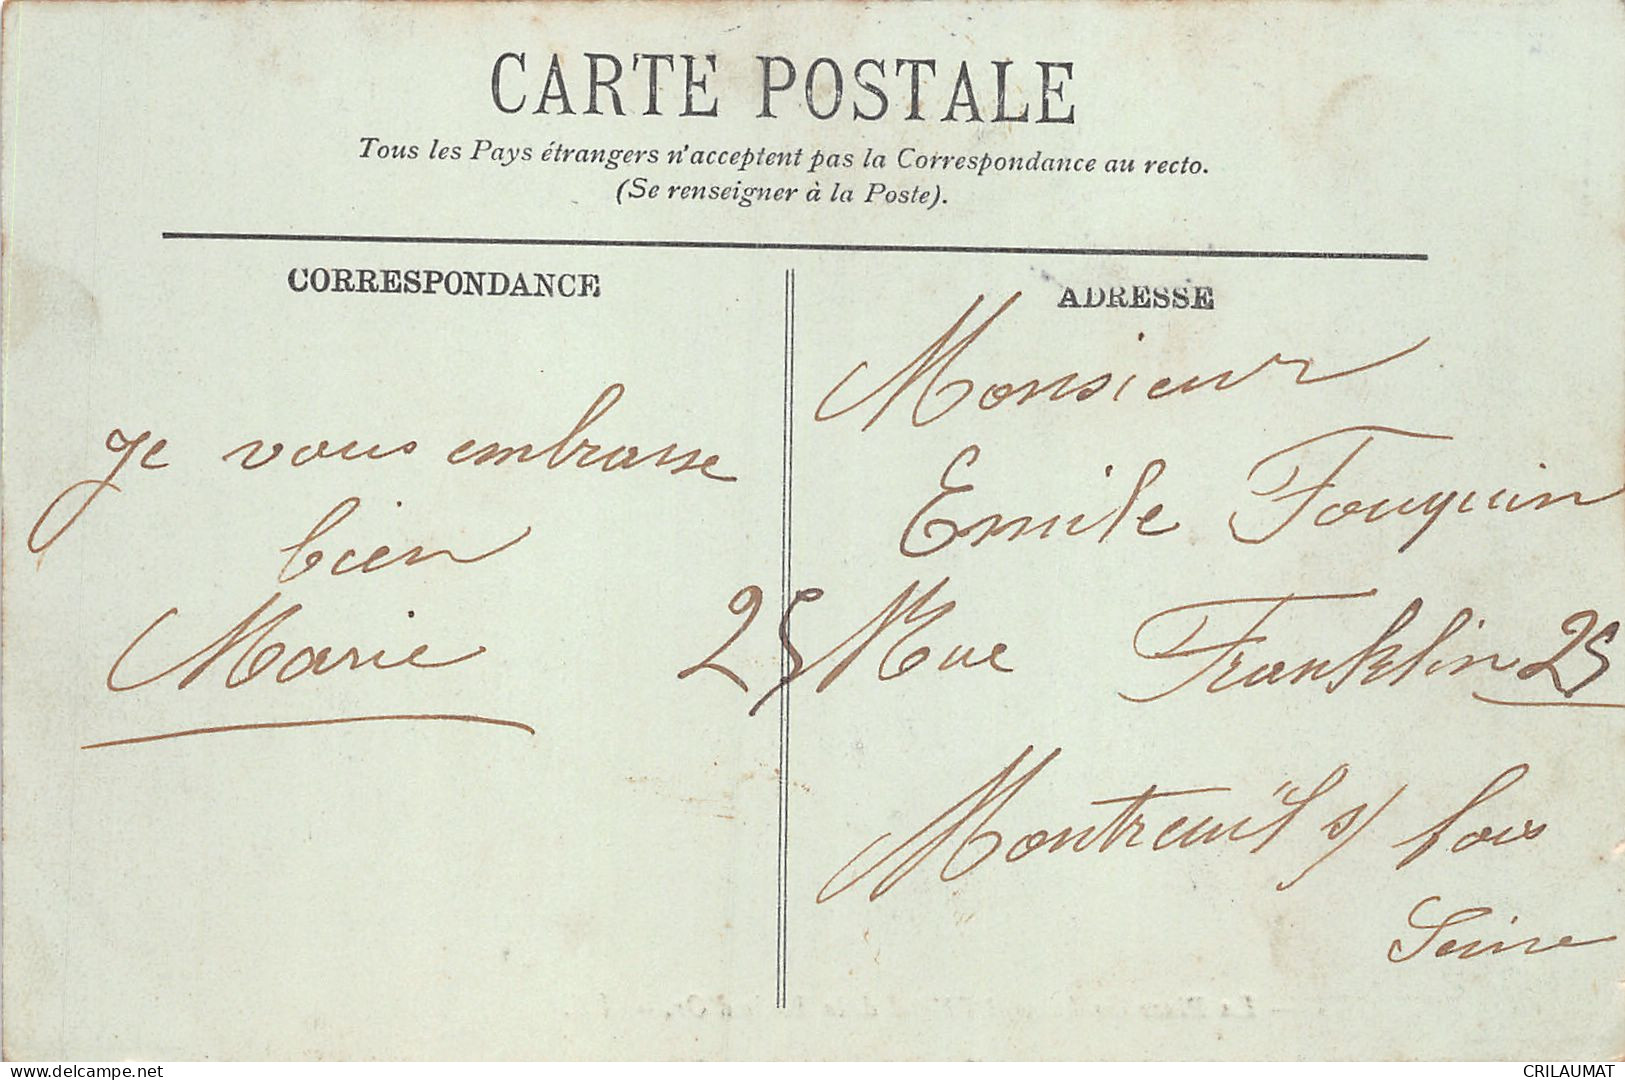 CARTE POSTALE
Tous les Pays étrangers n'acceptent pas la Correspondance au recto.
(Se renseigner à la Poste).
CORRESPONDANCE
Je vous embrasse
bien
Marie
ADRESSE
Monsieur
Emile Fouquin
25 Rue Franklin 25
Montreuil s/ bois
Seine
www.delcampe.net
CRILAUMAT